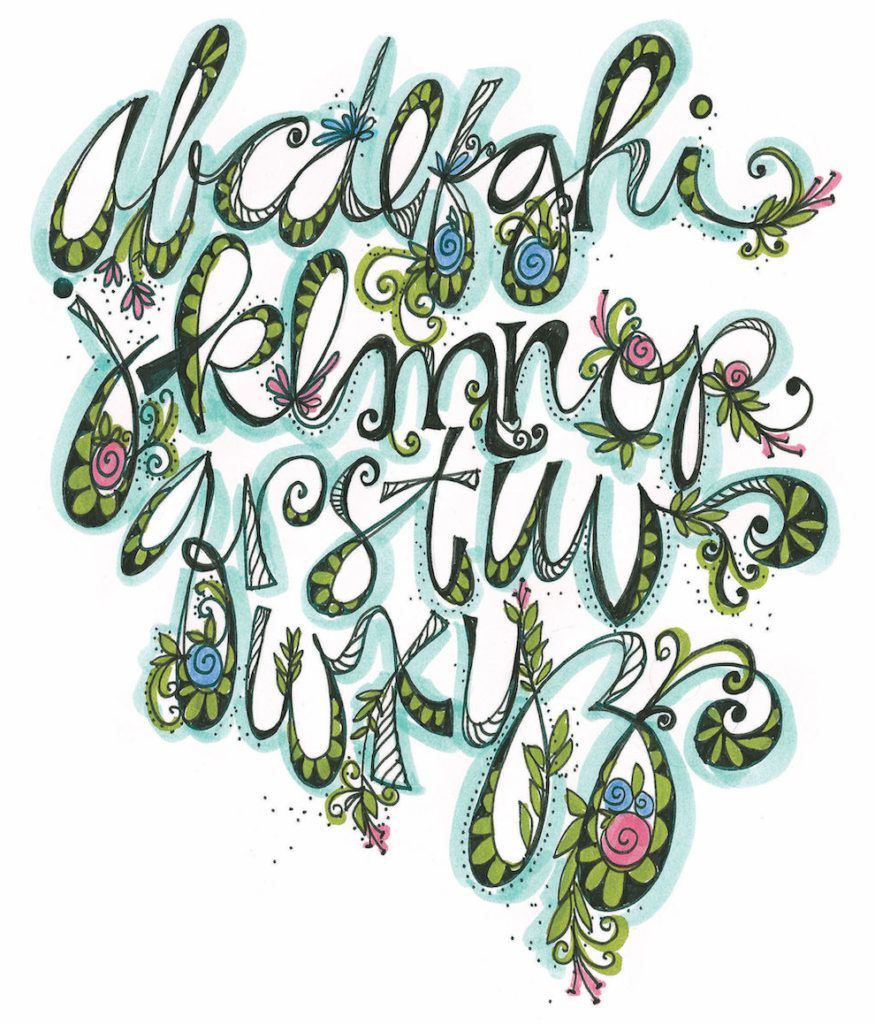 abcdefghi
jklmnop
qrstuv
wxyz